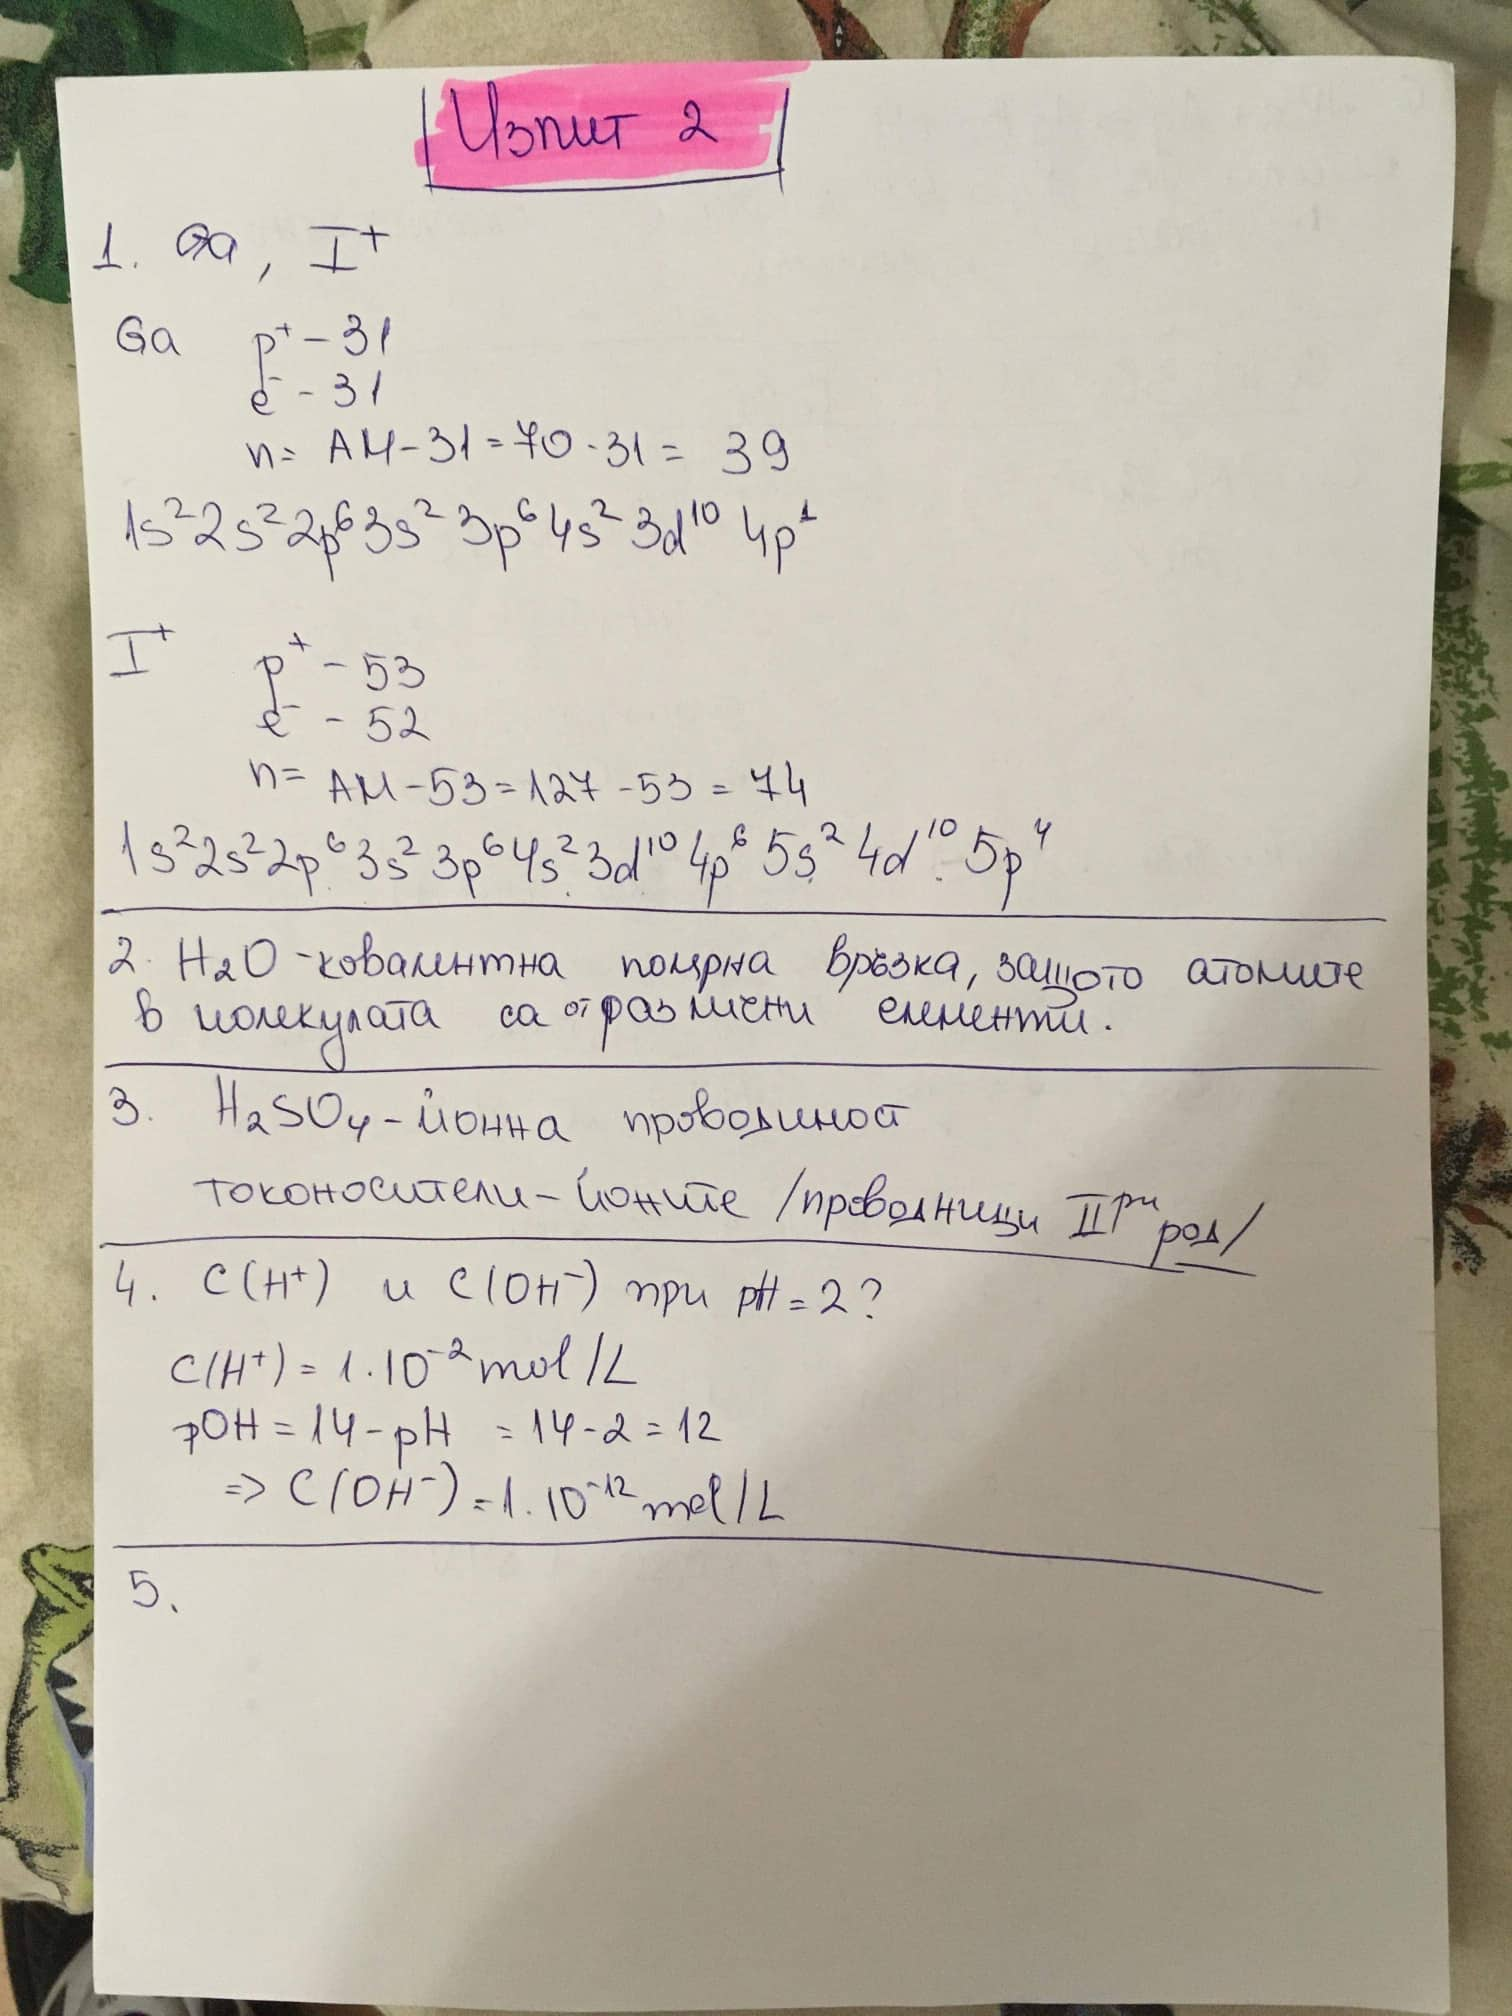 Изпит 2
1. Ga, I⁺
Ga p⁺ – 31
e⁻ – 31
n = AM – 31 = 70 - 31 = 39
1s² 2s² 2p⁶ 3s² 3p⁶ 4s² 3d¹⁰ 4p¹
I⁺ p⁺ – 53
e⁻ – 52
n = AM – 53 = 127 - 53 = 74
1s² 2s² 2p⁶ 3s² 3p⁶ 4s² 3d¹⁰ 4p⁶ 5s² 4d¹⁰ 5p⁴
2. H₂O - ковалентна полярна връзка, защото атомите
в молекулата са от различни елементи.
3. H₂SO₄ – йонна проводимост
токоносители – йоните /проводници IIри род/
4. C(H⁺) и C(OH⁻) при pH = 2?
C(H⁺) = 1.10⁻² mol/L
pOH = 14 – pH = 14 - 2 = 12
=> C(OH⁻) = 1.10⁻¹² mol/L
5.